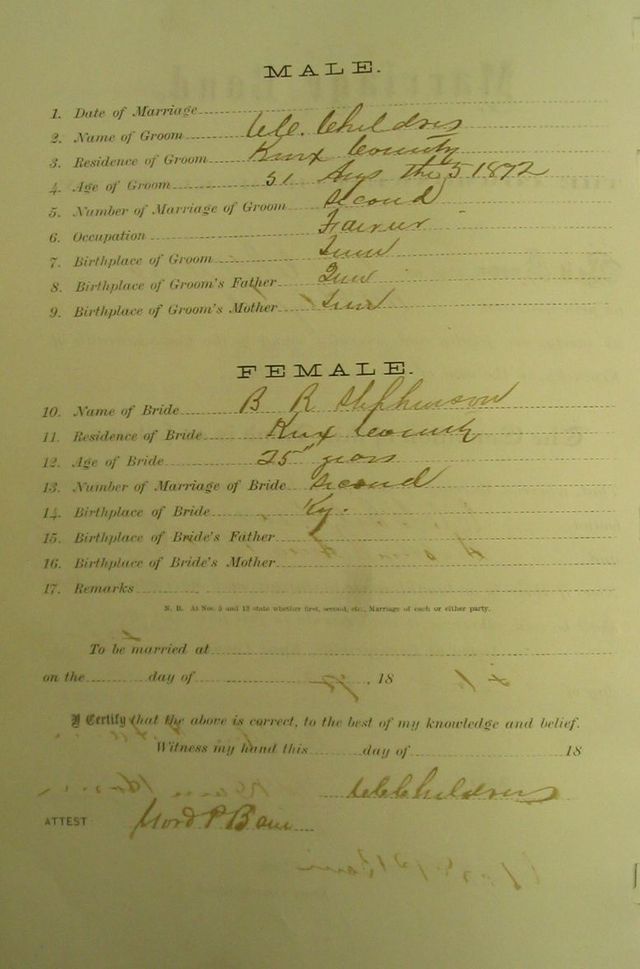 MALE.
1. Date of Marriage
2. Name of Groom Childres
3. Residence of Groom Knox County
4. Age of Groom 51 Aug the 5 1892
5. Number of Marriage of Groom Second
6. Occupation Farmer
7. Birthplace of Groom Tenn
8. Birthplace of Groom's Father Tenn
9. Birthplace of Groom's Mother Tenn
FEMALE.
10. Name of Bride B R Stephenson
11. Residence of Bride Knox County
12. Age of Bride 25 years
13. Number of Marriage of Bride Second
14. Birthplace of Bride Ky.
15. Birthplace of Bride's Father
16. Birthplace of Bride's Mother
17. Remarks
N. B. At Nos. 5 and 13 state whether first, second, etc., Marriage of each or either party.
To be married at
on the day of , 18
I Certify that the above is correct, to the best of my knowledge and belief.
Witness my hand this day of 18
Childres
ATTEST P Bain